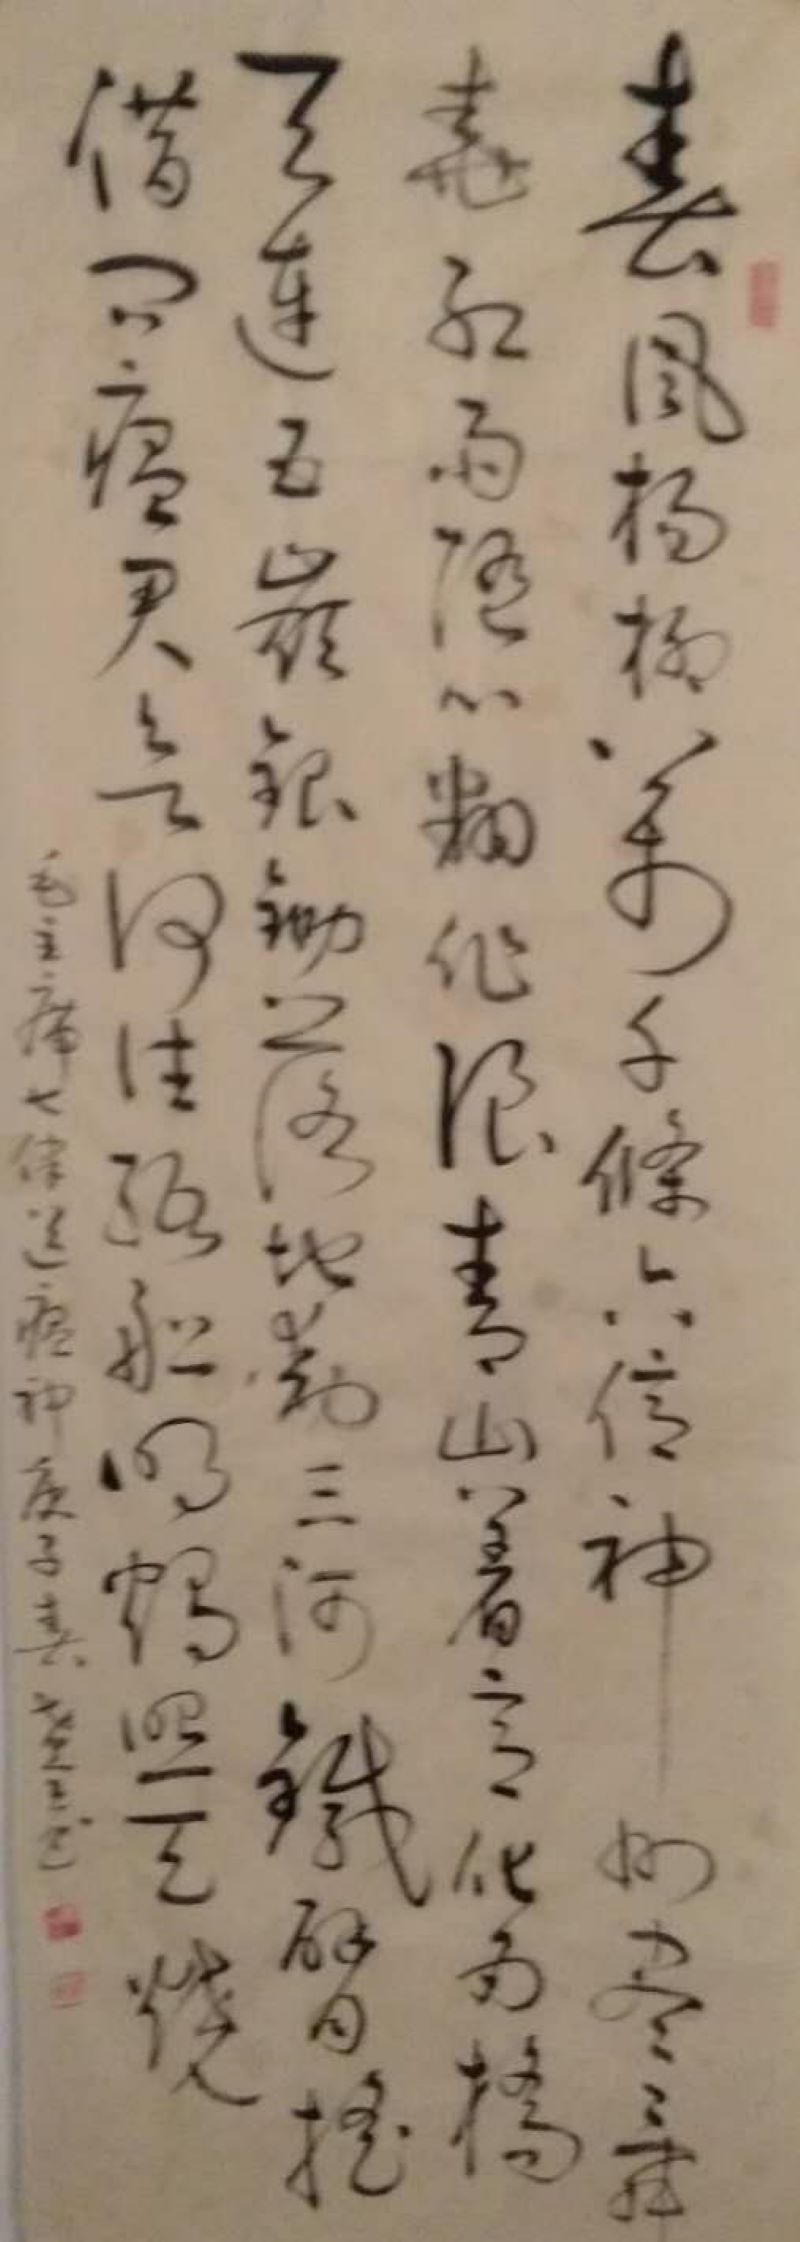 春風楊柳萬千條六億神州尽舜
堯紅雨随心翻作浪青山着意化为橋
天連五嶺銀鋤落地動三河鐵臂摇
借问瘟君欲何往紙船明燭照天燒
毛主席七律送瘟神庚子春